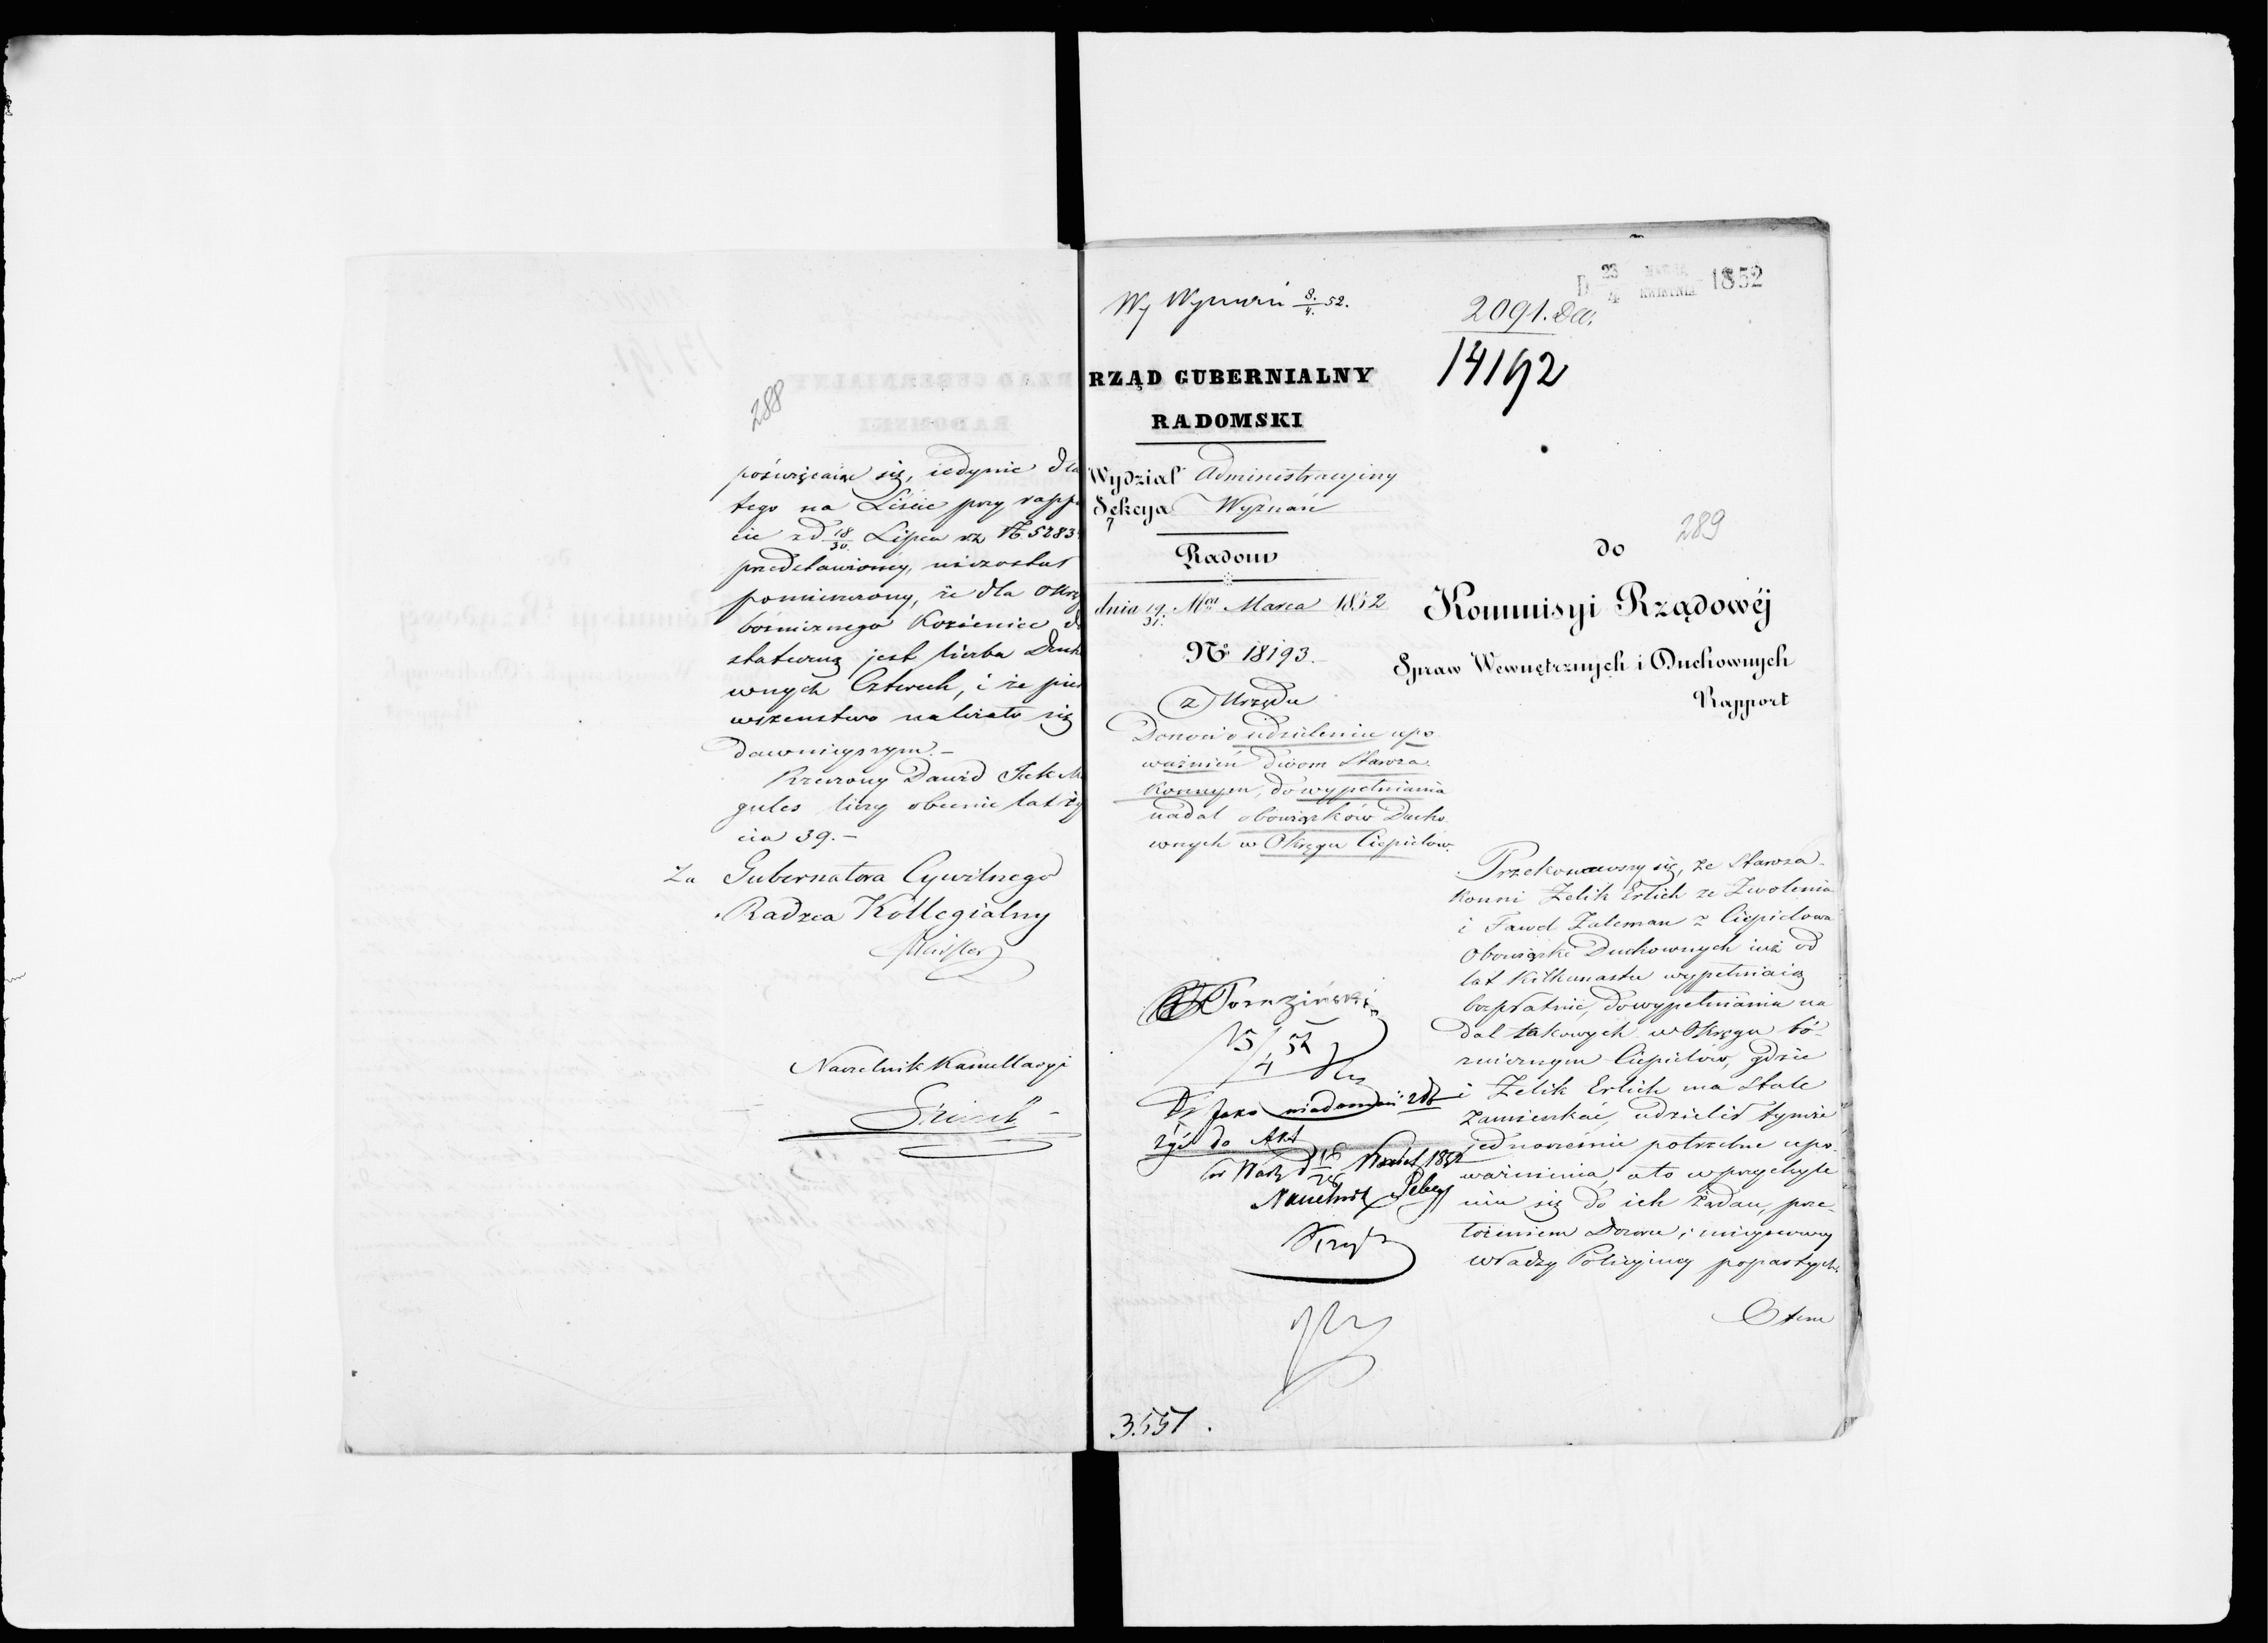 288
poświęcaiąc się, iedynie dla
tego na Liście przy rappo
cie z d 18/30 Lipca r.z. N 5283
przedstawionéy, niezostał
pomieszczony, że dla okrę
bożniczego Kozienice do
stateczną jest liczba Duch
wnych Czterech, i że pier
wszenstwo należało się
dawnieyszym. –
Rzeczony Dawid Icek M
gules liczy obecnie lat ży
cia 39. –
Za Gubernatora Cywilnego
Radzca Kollegialny
Naczelnik Kancellaryi
Wy Wyznań 8/4 52.
D 23 MARCA / 4 KWIETNIA 1852
2091.
14192
RZĄD GUBERNIALNY
RADOMSKI
Wydział Administracyiny
Sekcya Wyznań
Radom
dnia 19/31 Marca 1852
№ 18193.
z Urzędu
Donosi o udzieleniu upo
ważnień dwom Staroza-
konnym, do wypełniania
nadal obowiązków Ducho-
wnych w Okręgu Ciepielów.
289
do
Kommisyi Rządowéj
Spraw Wewnętrznych i Duchownych
Rapport
Przekonawszy się, że Staroza-
konni Zelik Erlich ze Zwolenia
i Pawel Zaleman z Ciepielowa
Obowiązki Duchownych iuż od
lat kilkunastu wypełniaią
bezpłatnie, do wypełniania na
dal takowych w Okręgu bó-
żnicznym Ciepielów, gdzie
i Zelik Erlich ma Stale
zamieszkać, udzielił tymże
jednocześnie potrzebne upo-
ważnienia, a to w przychyle
niu się do ich żądań, prze-
łożeniem Dozoru i mieyscowey
władzy Policyiney popartych.
O tem
5/4 52
Jako wiadomość
żyć do Akt
Naczelnik
3551.